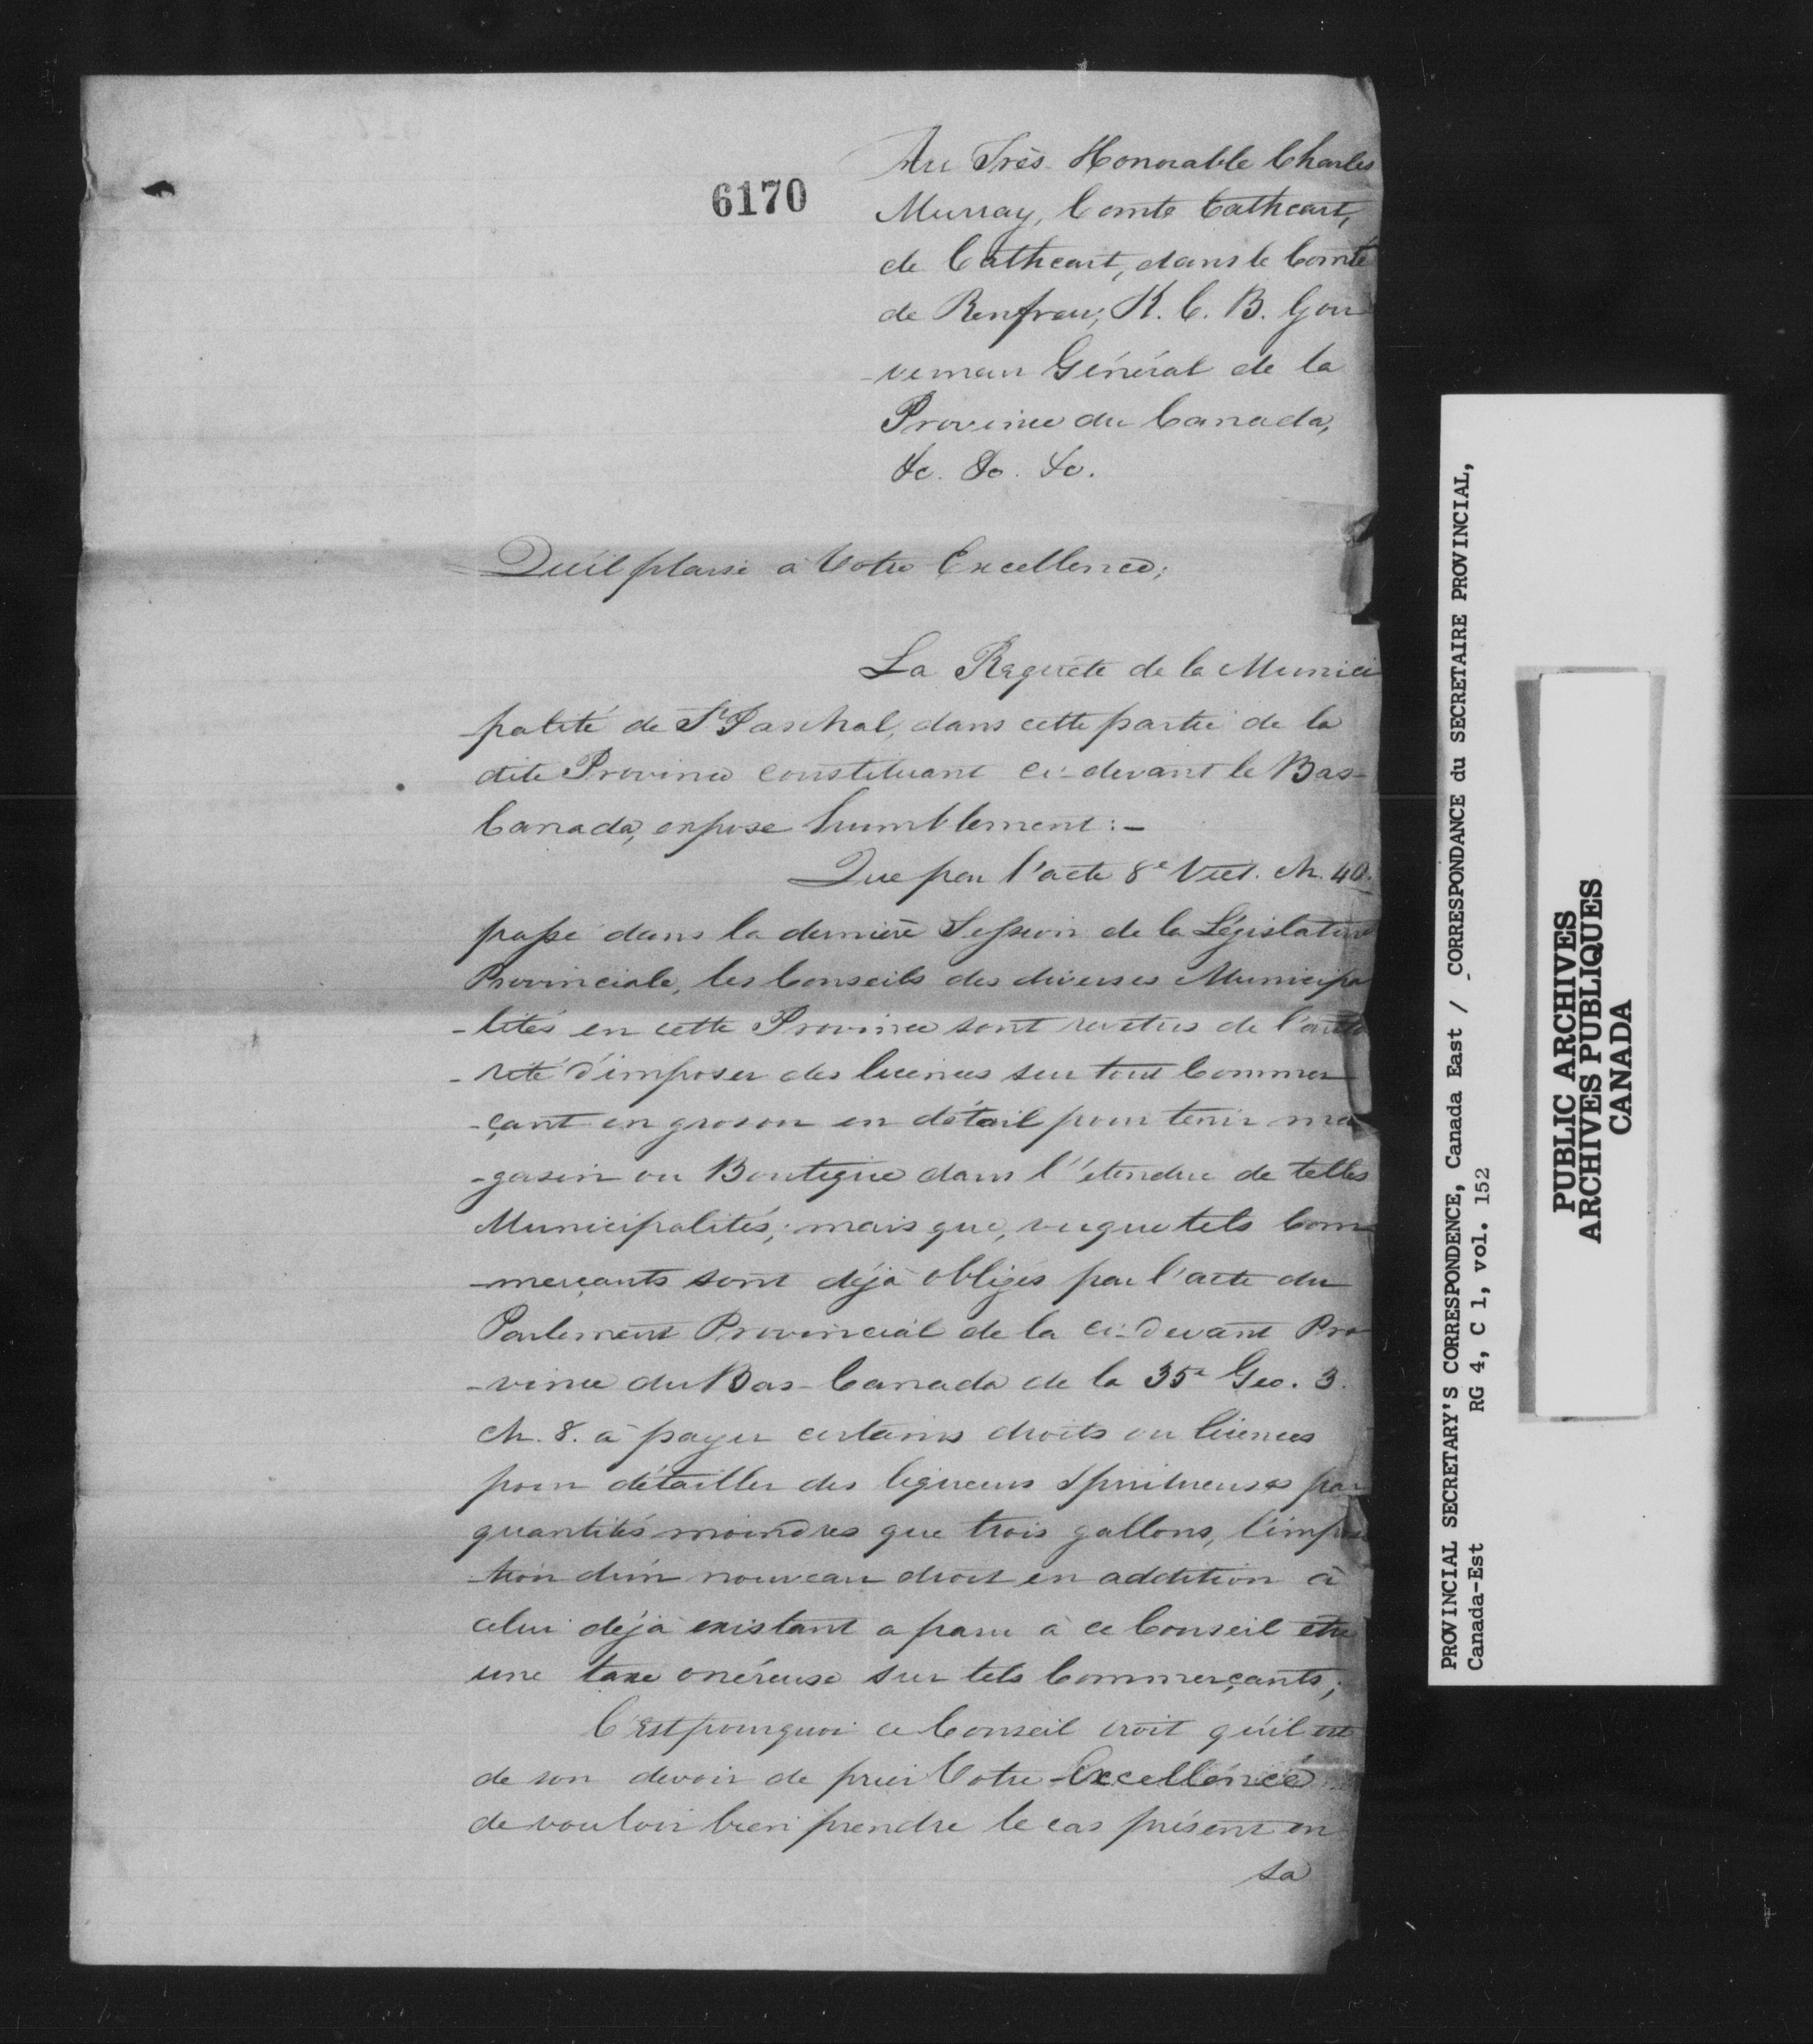 6170
Au Très-Honorable Charles
Murray, Comte Cathcart,
de Cathcart, dans le Comté
de Renfrew, K. C. B. Gou
-verneur Général de la
Province du Canada,
&c. &c. &c.
Qu'il plaise à Votre Excellence;
La Requête de la Munici
-palité de St Paschal, dans cette partie de la
dite Province constituant ci-devant le Bas-
Canada, expose humblement :-
Que par l'acte 8e Vict. ch. 40.
passé dans la dernière Session de la Législature
Provinciale, les Conseils des diverses Municipa
-lités en cette Province sont revêtus de l'auto
-rité d'imposer des licences sur tout Commer
-çant en gros ou en détail pour tenir ma
-gasin ou Boutique dans l'étendue de telles
Municipalités; mais que, vu que tels Com
-merçants sont déjà obligés par l'acte du
Parlement Provincial de la ci-devant Pro
-vince du Bas-Canada de la 35e Geo. 3.
ch. 8. à payer certains droits ou licences
pour détailler des liqueurs Spiritueuses par
quantités moindres que trois gallons, l'imposi
-tion d'un nouveau droit en addition à
celui déjà existant a paru à ce Conseil être
une taxe onéreuse sur tels Commerçants;
C'est pourquoi ce Conseil croit qu'il est
de son devoir de prier Votre Excellence
de vouloir bien prendre le cas présent en
sa
PROVINCIAL SECRETARY'S CORRESPONDENCE, Canada East / CORRESPONDANCE du SECRETAIRE PROVINCIAL,
Canada-Est RG 4, C 1, vol. 152
PUBLIC ARCHIVES
ARCHIVES PUBLIQUES
CANADA